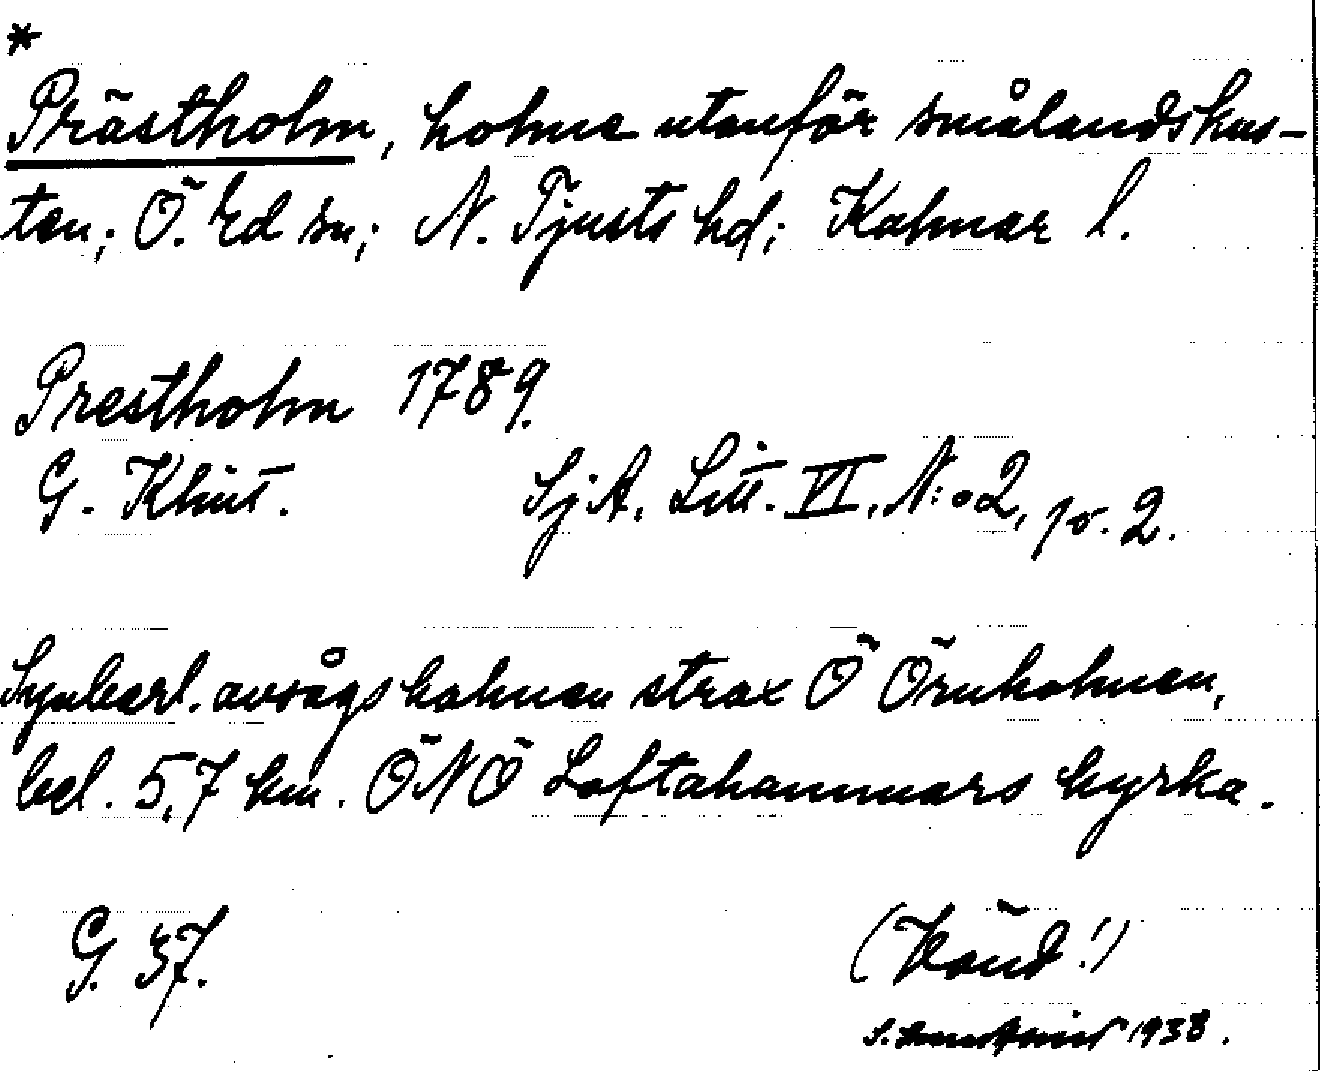 *
Prästholm, holme utanför smålandskus-
ten; Ö. Ed sn; N. Tjusts hd; Kalmar l.
Prestholm 1789.
G. Klint. SjA. Litt. VI. N:o 2, p. 2.
Synbarl. avsågs holmen strax Ö Örnholmen,
bel. 5,7 km. ÖNÖ Loftahammars kyrka.
G. 37. (Känd!)
S. 1938.